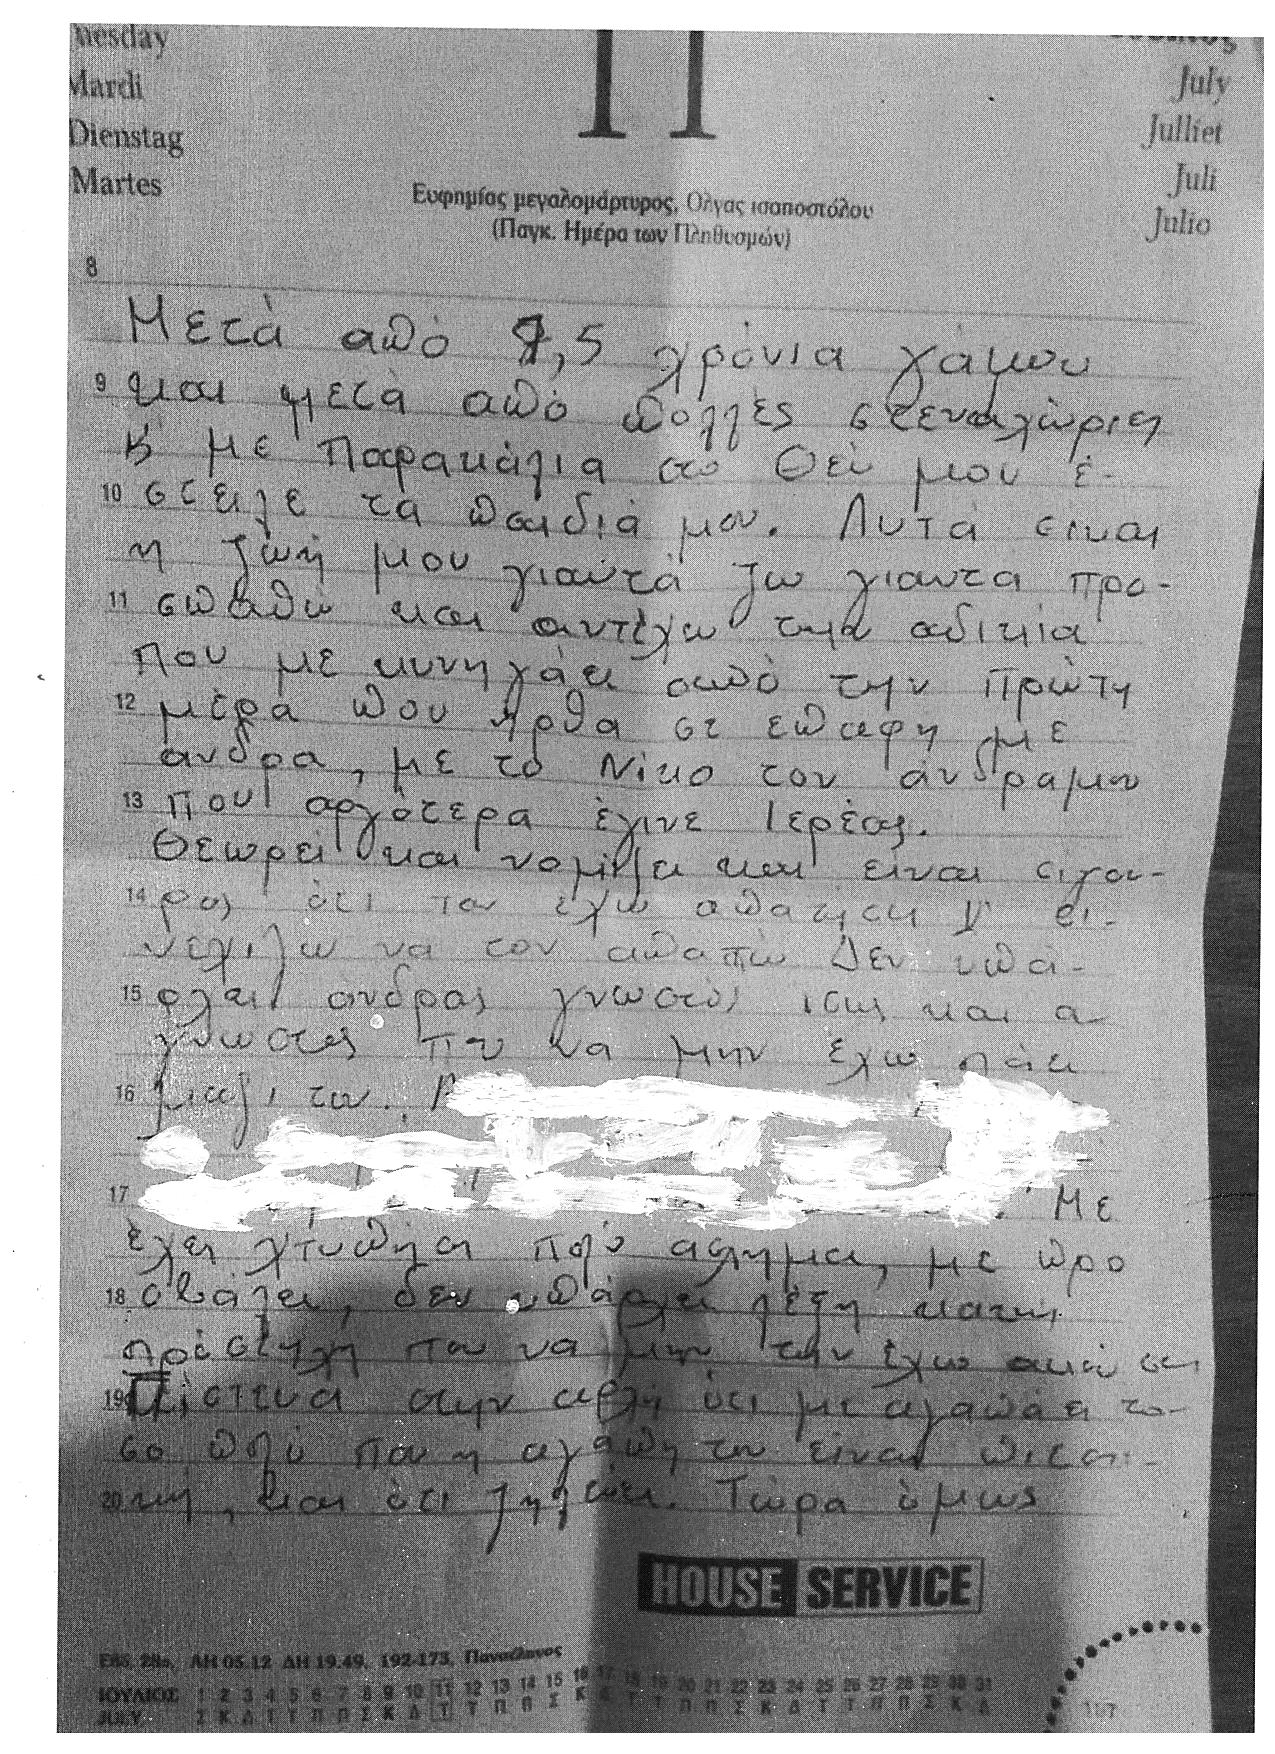 Tuesday
Mardi
Dienstag
Martes
11
July
Julliet
Juli
Julio
Ευφημίας μεγαλομάρτυρος, Όλγας ισαποστόλου
(Παγκ. Ημέρα των Πληθυσμών)
8
Μετά από 9,5 χρόνια γάμου
9 και μετά από πολλές στεναχώριες
κ' με παρακάλια στο Θεό μου έ-
10 στειλε τα παιδιά μου. Αυτά είναι
η ζωή μου γιαυτά ζω γιαυτα προ-
11 σπαθώ και αντέχω την αδικία
που με κυνηγάει από την πρώτη
12 μέρα που ήρθα σε επαφή με
άνδρα, με το Νίκο τον άνδραμου
13 που αργότερα έγινε Ιερέας.
Θεωρεί και νομίζει και είναι σιγου-
14 ρος ότι τον έχω απατήσει κ'
νεχίζω να τον απατώ Δεν υπά-
15 ρχει άνδρας γνωστός ίσως και α
γνωστος που να μην έχω πάει
16 μαζί του.
17 Με
έχει χτυπήσει πολύ ασχημα, με προ
18 σβάλει, δεν υπάρχει λέξη κατηγ
πρόστυχη που να μην την έχω ακούσει
19 Πίστευα στην αρχή ότι με αγαπάει το-
σο πολύ που η αγάπη του είναι
20 και ότι ζηλεύει. Τώρα όμως
HOUSE SERVICE
Εβδ. 28η, ΑΗ 05.12 ΔΗ 19.49, 192-173, Πανσέληνος
ΙΟΥΛΙΟΣ 1 2 3 4 5 6 7 8 9 10 11 12 13 14 15 16 17 18 19 20 21 22 23 24 25 26 27 28 29 30 31
JULY Σ Κ Δ Τ Τ Π Π Σ Κ Δ Τ Τ Π Π Σ Κ Δ Τ Τ Π Π Σ Κ Δ Τ Τ Π Π Σ Κ Δ